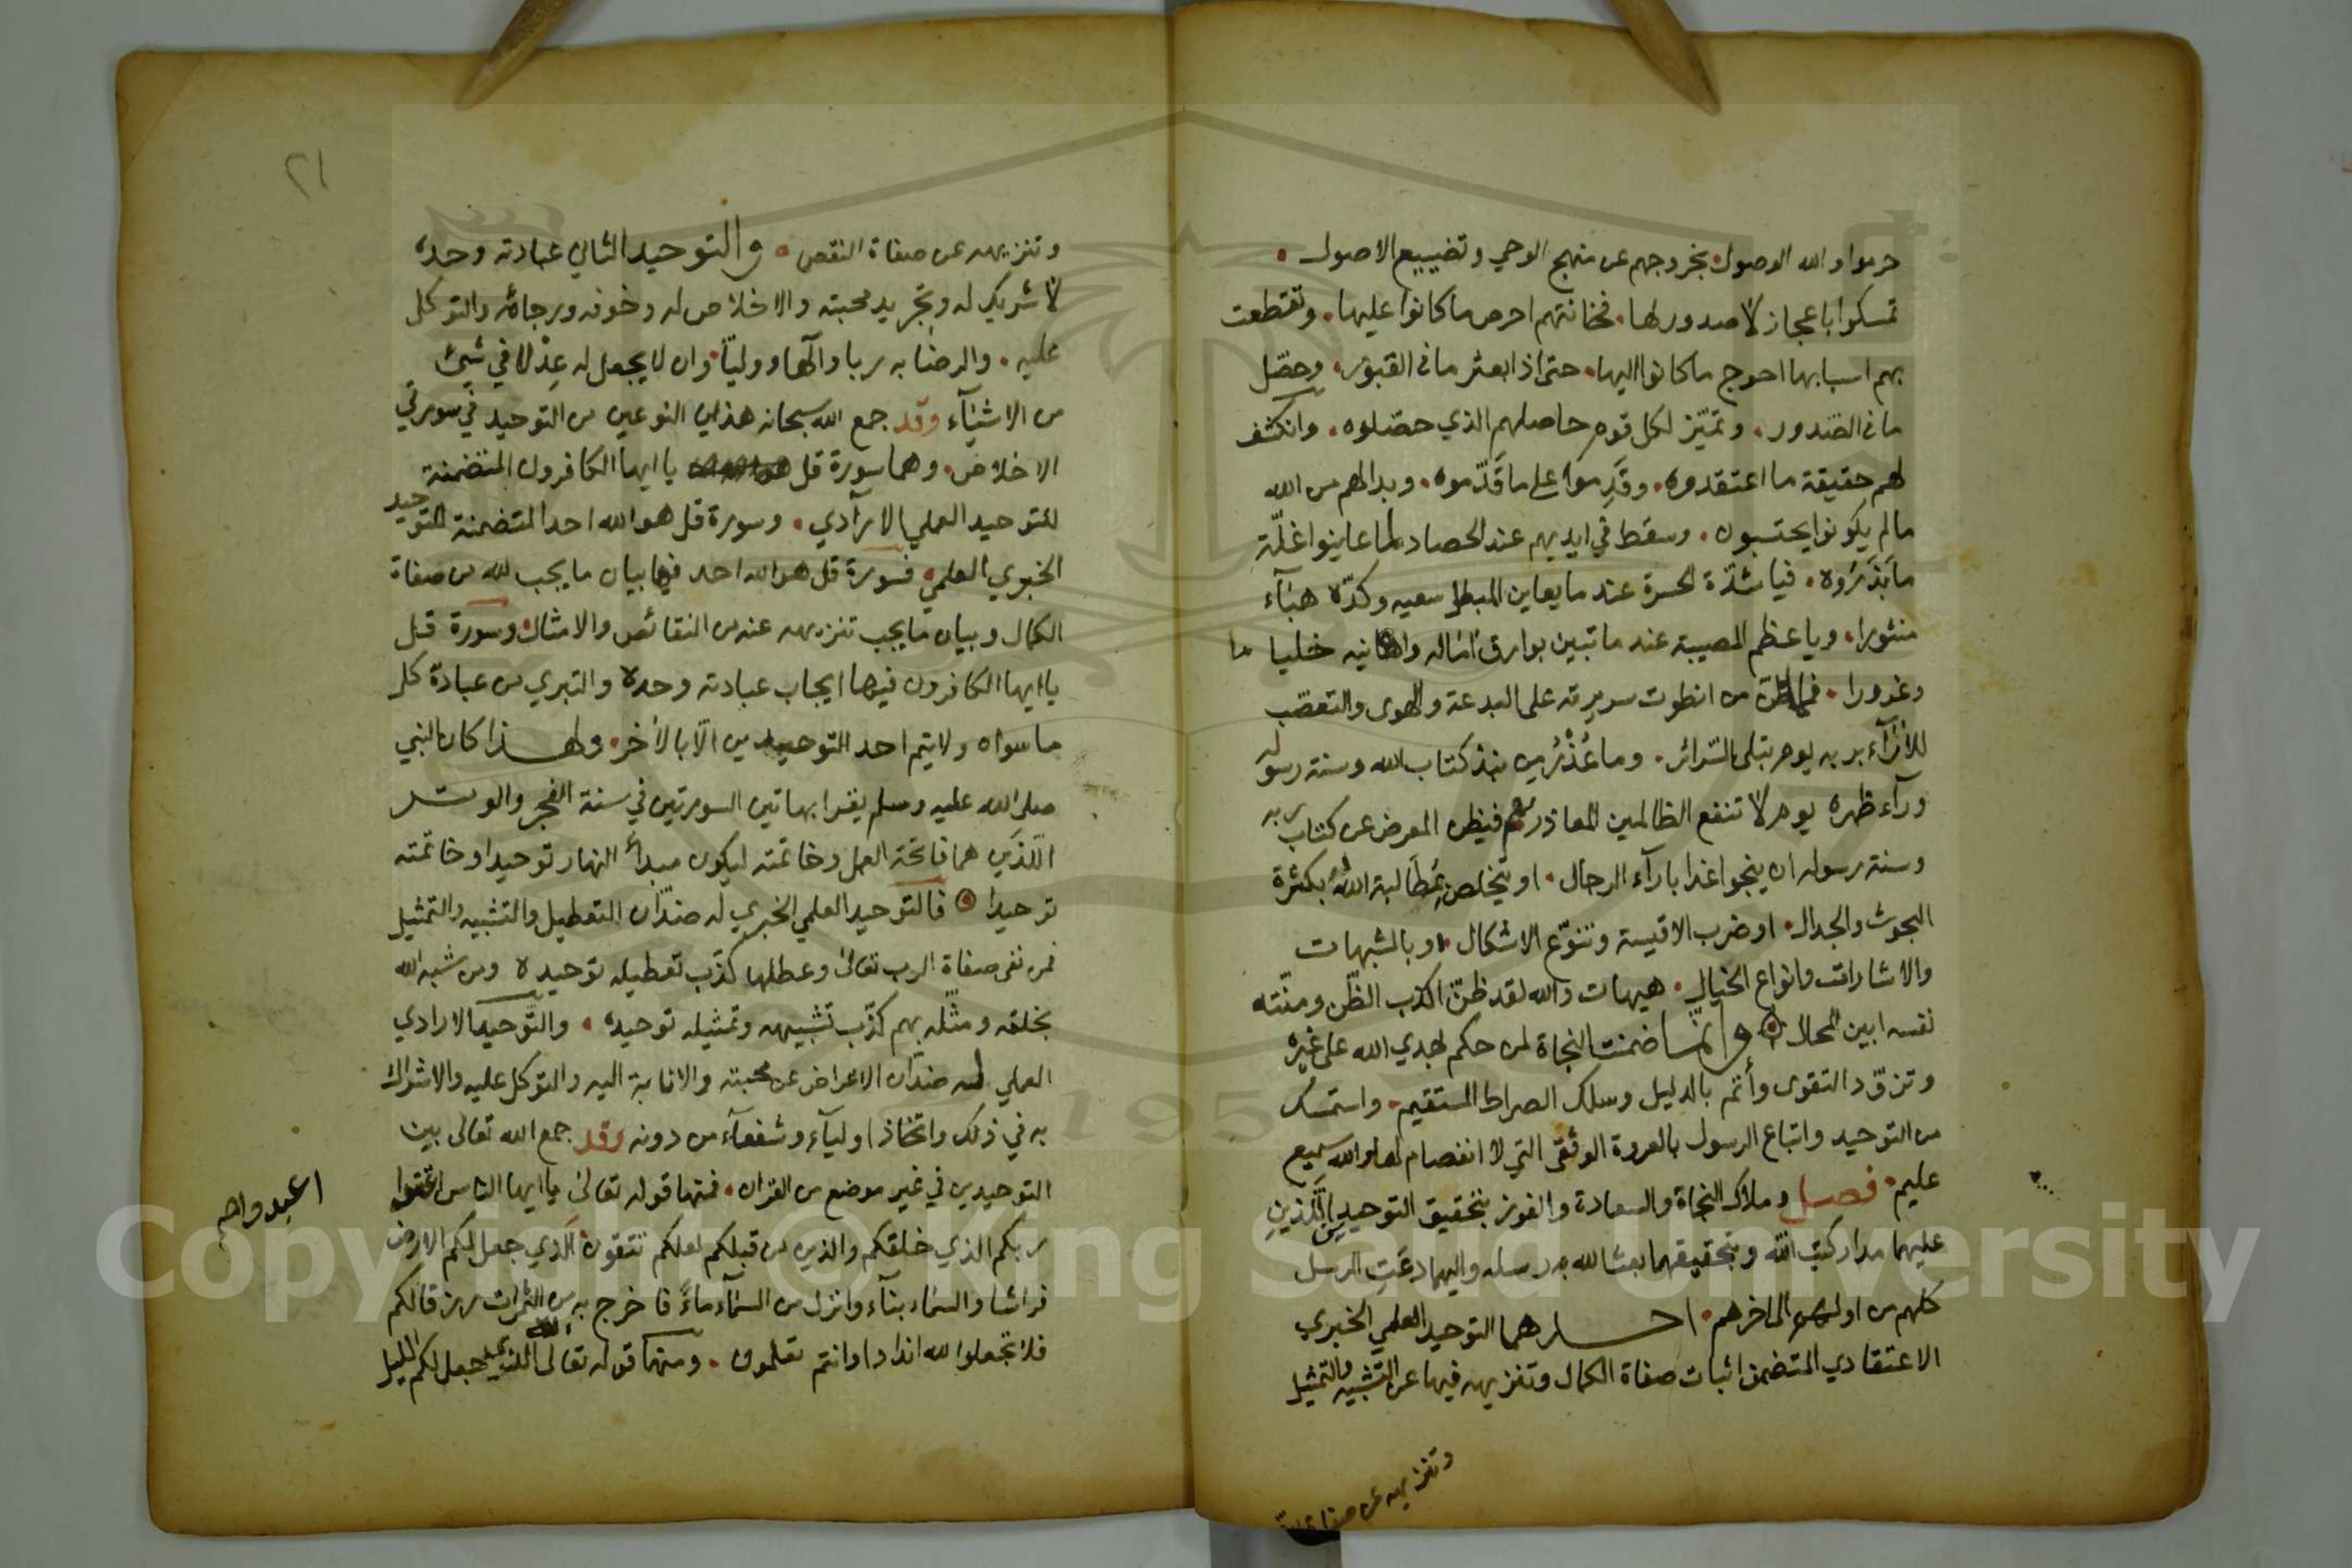 حرموا والله الوصول بخروجهم عن منهج الوحي وتضييع الاصول
تمسكوا باعجاز لا صدور لها فخانتهم احرص ما كانوا عليها وتقطعت
بهم اسبابها احوج ما كانوا اليها حتى اذا بعثر ما في القبور وحصّل
ما في الصّدور وتميّز لكل قوم حاصلهم الذي حصّلوه وانكشف
لهم حقيقة ما اعتقدوه وقَدِموا على ما قَدّموه وبدا لهم من الله
ما لم يكونوا يحتسبون وسقط في ايديهم عند الحصاد لما عاينوا غلّة
ما بَذَرُوه فيا شدّة الحسرة عند ما يعاين المبطل سعيه وكدّه هبآء
منثورا ويا عظم المصيبة عند ما تبين بوارق آماله وامانيه خلبا
وغرورا فما ظن من انطوت سريرته على البدعة والهوى والتعصّب
للآرآء بربه يوم تبلى السّرائر وما عُذْرُ من نبذ كتاب الله وسنة رسوله
ورآء ظهره يوم لا تنفع الظالمين المعاذر فيظن المعرض عن كتاب ربه
وسنة رسوله ان ينجوا غدا بارآء الرجال او يتخلص بمطالبة الله بكثرة
البحوث والجدال او ضرب الاقيسة وتنوّع الاشكال او بالشبهات
والاشارات وانواع الخيال هيهات والله لقد ظنّ اكذب الظّن ومنّته
نفسه ابين المحال وانّما ضمنت النجاة لمن حكم بهدي الله على غيره
وتزوّد التقوى وأتم بالدليل وسلك الصراط المستقيم واستمسك
من التوحيد واتباع الرسول بالعروة الوثقى التي لا انفصام لها والله سميع
عليم فصل وملاك النجاة والسعادة والفوز بتحقيق التوحيدين اللّذين
عليهما مدار كتب الله وبتحقيقهما بعث الله رسله واليهما دعت الرسل
كلهم من اولهم الى اخرهم احدهما التوحيد العلمي الخبري
الاعتقادي المتضمن اثبات صفاة الكمال وتنزيهه فيها عن التشبيه والتمثيل
وتنزيهه عن صفاة
٢١
وتنزيهه عن صفاة النقص والتوحيد الثاني عبادته وحده
لا شريك له وتجريد محبته والاخلاص له وخوفه ورجاؤه والتوكل
عليه والرضا به ربا وآلها ووليّا وان لا يجعل له عِدْلا في شيئ
من الاشيآء وقد جمع الله سبحانه هذين النوعين من التوحيد في سورتي
الاخلاص وهما سورة قل يا ايها الكافرون المتضمنة
للتوحيد العملي الارادي وسورة قل هو الله احد المتضمنة للتوحيد
الخبري العلمي فسورة قل هو الله احد فيها بيان ما يجب لله من صفاة
الكمال وبيان ما يجب تنزيهه عنه من النقائص والامثال وسورة قل
يا ايها الكافرون فيها ايجاب عبادته وحده والتبري من عبادة كل
ما سواه ولا يتم احد التوحيدين الّا بالآخر ولهذا كان النبي
صلى الله عليه وسلم يقرا بهاتين السورتين في سنة الفجر والوتر
اللّذين هما فاتحة العمل وخاتمته ليكون مبدأ النهار توحيدا وخاتمته
توحيدا فالتوحيد العلمي الخبري له ضدّان التعطيل والتشبيه والتمثيل
فمن نفى صفاة الرب تعالى وعطلها كذّب تعطيله توحيده ومن شبه الله
بخلقه ومثّله بهم كذّب تشبيهه وتمثيله توحيده والتّوحيد الارادي
العملي له ضدّان الاعراض عن محبته والانابة اليه والتوكل عليه والاشراك
به في ذلك واتخاذ اوليآء وشفعآء من دونه وقد جمع الله تعالى بين
التوحيدين في غير موضع من القران فمنها قوله تعالى يا ايها الناس اتقوا
اعبدوا صح
ربكم الذي خلقكم والذين من قبلكم لعلكم تتقون الذي جعل لكم الارض
فراشا والسماء بنآء وانزل من السمآء مآءً فاخرج به من الثمرات رزقا لكم
فلا تجعلوا لله اندادا وانتم تعلمون ومنها قوله تعالى الله الذي جعل لكم الليل
Copyright © King Saud University
195